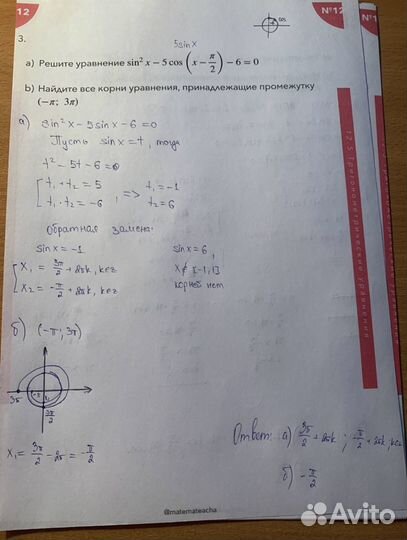 12
№12
№1
cos
3.
5sinx
a) Решите уравнение sin² x − 5 cos (x − π/2) − 6 = 0
b) Найдите все корни уравнения, принадлежащие промежутку
(−π; 3π)
а) sin²x − 5sinx − 6 = 0
Пусть sinx = t, тогда
t² − 5t − 6 = 0
t₁ + t₂ = 5
t₁ · t₂ = −6, => t₁ = −1
t₂ = 6
Обратная замена:
sinx = −1
sinx = 6,
x₁ = 3π/2 + 2πk, k∈z
x₂ = −π/2 + 2πk, k∈z
x∉[−1, 1]
корней нет
б) (−π; 3π)
3π
−π
3π/2
x₁ = 3π/2 − 2π = −π/2
Ответ: а) 3π/2 + 2πk; −π/2 + 2πk, k∈z
б) −π/2
@matemateacha
12.5 Тригонометрические уравнения
Avito